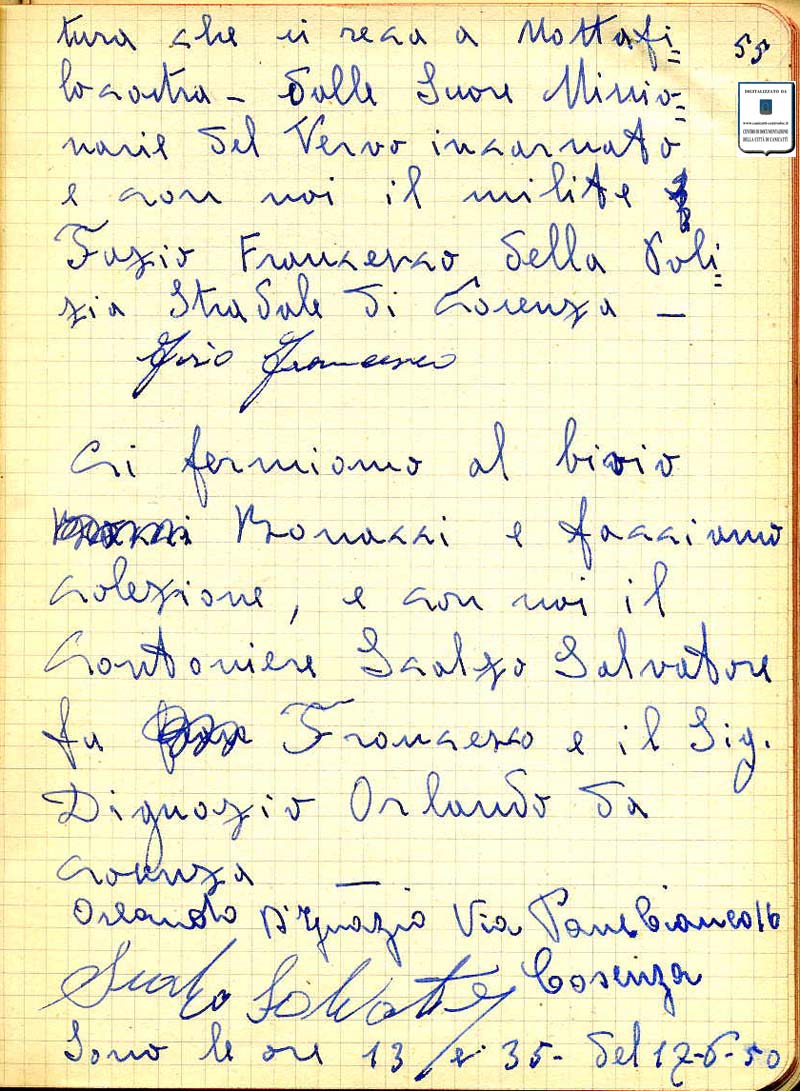 tura che si reca a Mottafi=
locastra - dalle Suore Missio=
narie del Verbo incarnato
e con noi il milite
Fazio Francesco della Poli=
zia Stradale di Cosenza -
Fazio Francesco
Ci fermiamo al bivio
Bonacci e facciamo
colezione, e con noi il
Cantoniere Scalzo Salvatore
fu Francesco e il Sig.
Dignazio Orlando da
Cosenza -
Orlando D'Ignazio Via Panebianco 16
Cosenza
Scalzo Salvatore
Sono le ore 13 e 35 - del 17-6-50
55
DIGITALIZZATO DA
CENTRO DI DOCUMENTAZIONE
DELLA CITTÀ DI CANICATTÌ